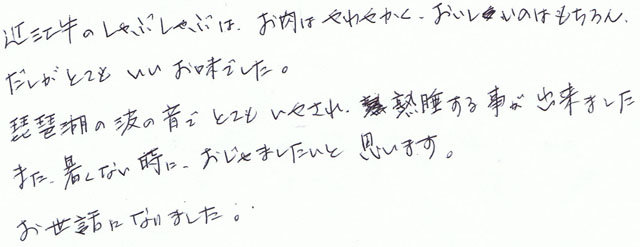 近江牛のしゃぶしゃぶは、お肉はやわやかく、おいしいのはもちろん、
だしがとてもいいお味でした。
琵琶湖の波の音でとてもいやされ、熟睡する事が出来ました
また、暑くない時に、おじゃましたいと思います。
お世話になりました。